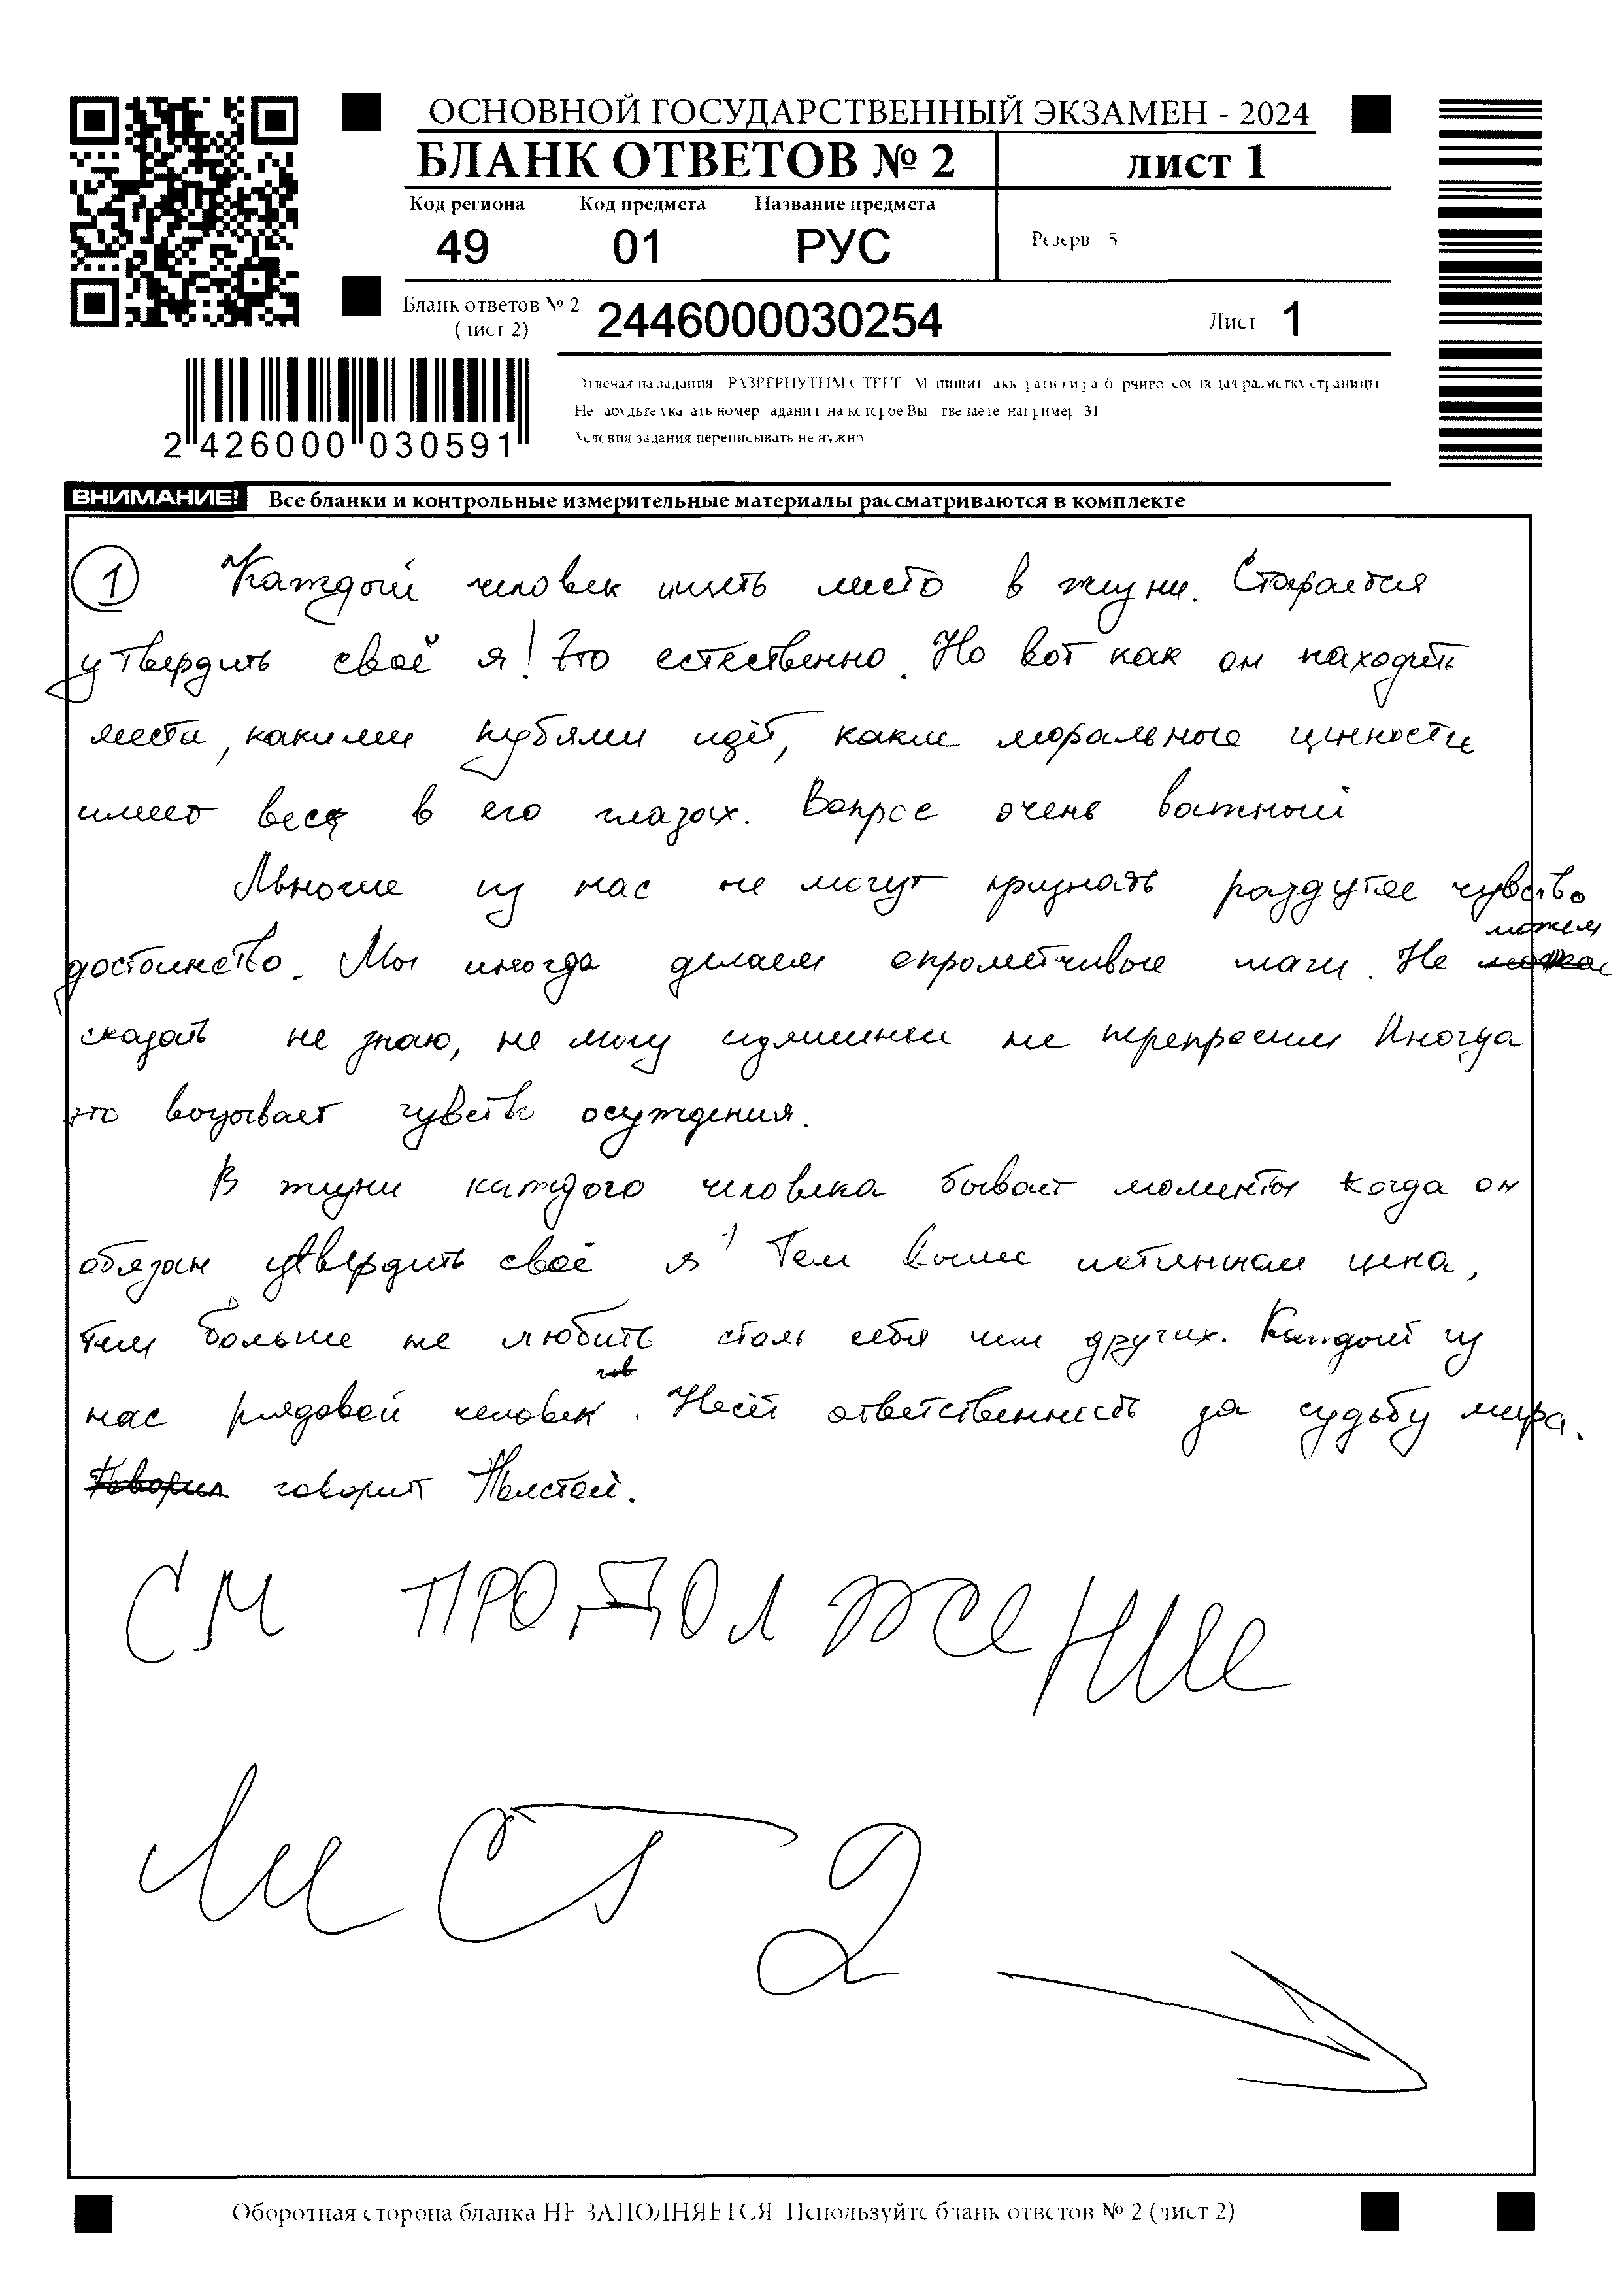 ОСНОВНОЙ ГОСУДАРСТВЕННЫЙ ЭКЗАМЕН - 2024
БЛАНК ОТВЕТОВ № 2
лист 1
Код региона Код предмета Название предмета
49 01 РУС
Резерв 5
Бланк ответов № 2
(лист 2)
2446000030254
Лист 1
2 426000 030591
Условия задания переписывать не нужно
ВНИМАНИЕ! Все бланки и контрольные измерительные материалы рассматриваются в комплекте
1 Каждый человек ищеть место в жизни. Старается
утвердить своё я! Это естественно. Но вот как он находить
места, какими путями идёт, какие моральные ценности
имеет вес в его глазах. Вопрос очень важный
Мьногие из нас не могут признать раздутое чувство
достоинство. Мы иногда делаем опрометчивые шаги. Не можем
сказать не знаю, не могу не перепросим Иногда
это возывает чувств осуждения.
В жизни каждого человека бывает моменты когда он
обязан утвердить своё я Тем выше цена,
тем больше не любить столь себя чем других. Каждый из
нас рядовой человек. Несёт ответственность за судьбу мира.
говорит Толстой.
СМ ПРОДОЛЖЕНИЕ
ЛИСТ 2
Оборотная сторона бланка НЕ ЗАПОЛНЯЕТСЯ Используйте бланк ответов № 2 (лист 2)